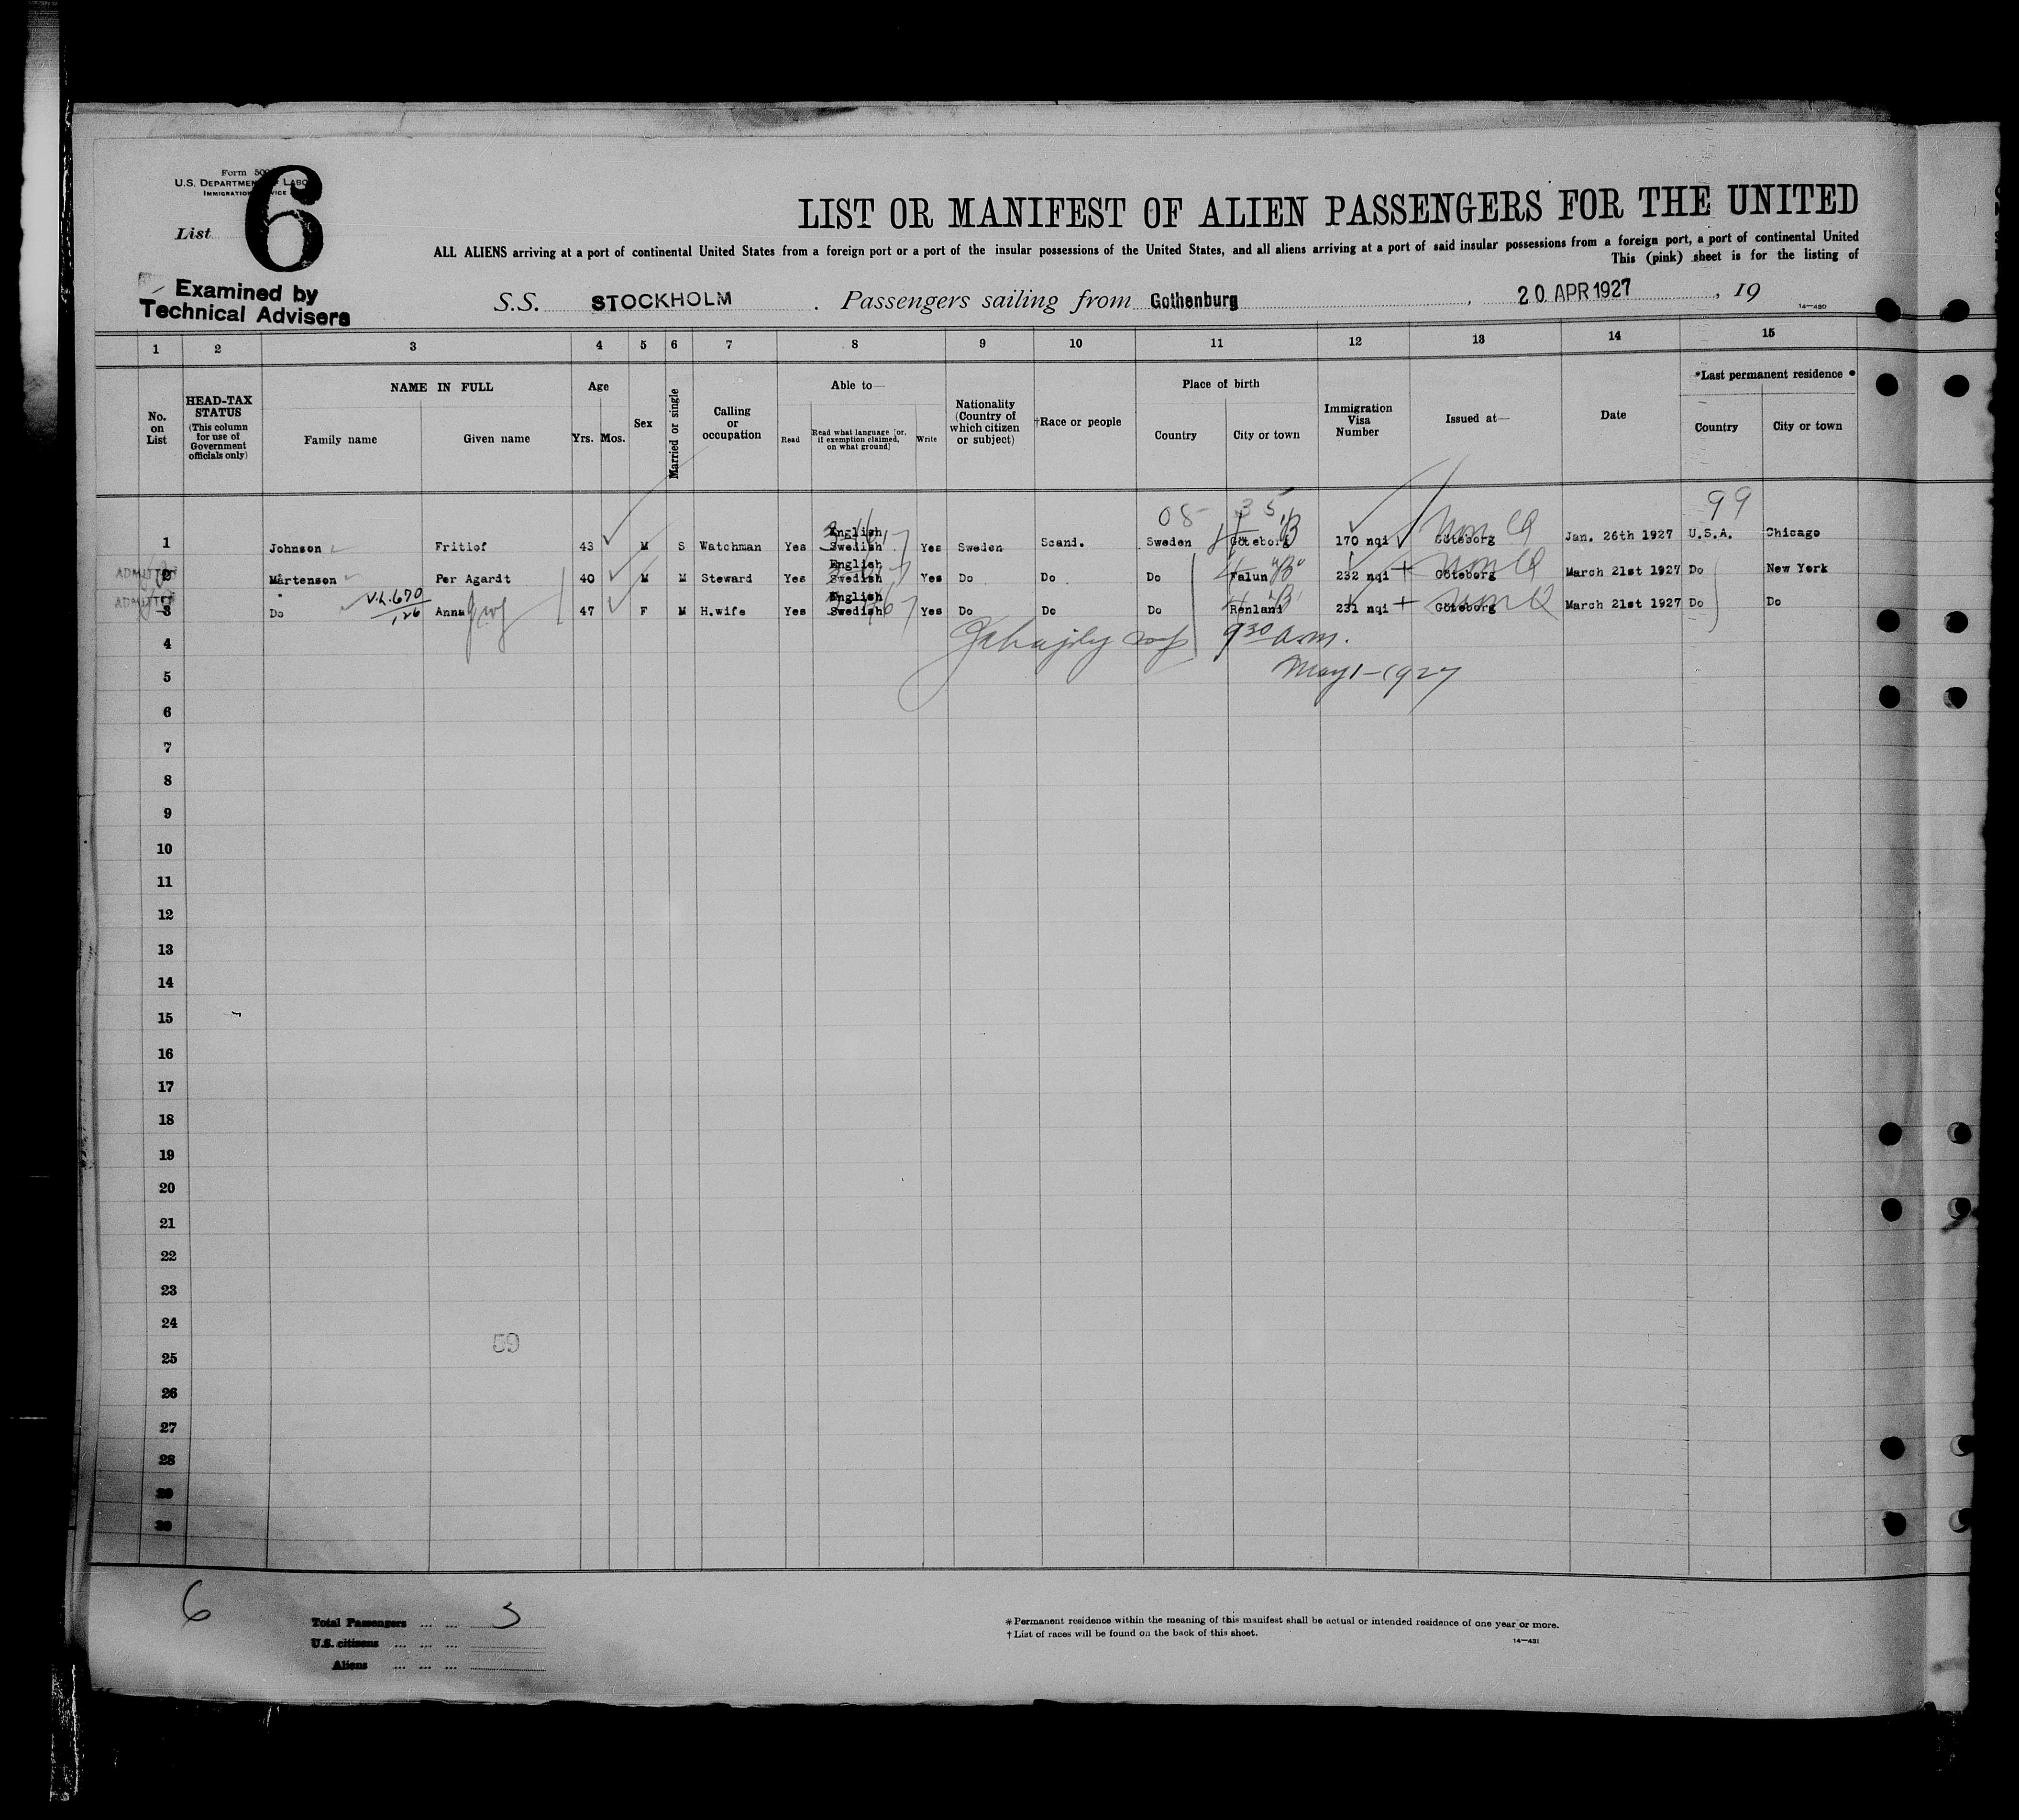 Form 500
U.S. DEPARTMENT OF LABOR
IMMIGRATION SERVICE
List 6
LIST OR MANIFEST OF ALIEN PASSENGERS FOR THE UNITED
ALL ALIENS arriving at a port of continental United States from a foreign port or a port of the insular possessions of the United States, and all aliens arriving at a port of said insular possessions from a foreign port, a port of continental United
This (pink) sheet is for the listing of
Examined by
Technical Advisers
S.S. STOCKHOLM . Passengers sailing from Gothenburg , 20 APR 1927 , 19
14—430
1 2 3 4 5 6 7 8 9 10 11 12 13 14 15
No. on List
HEAD-TAX STATUS (This column for use of Government officials only)
NAME IN FULL Family name Given name
Age Yrs. Mos.
Sex
Married or single
Calling or occupation
Able to— Read Read what language [or, if exemption claimed, on what ground] Write
Nationality (Country of which citizen or subject)
†Race or people
Place of birth Country City or town
Immigration Visa Number
Issued at—
Date
*Last permanent residence Country City or town
08 35 99
1 Johnson Fritiof 43 M S Watchman Yes English Swedish Yes Sweden Scand. Sweden Göteborg 170 nqi Göteborg Jan. 26th 1927 U.S.A. Chicago
ADMITTED 2 Mårtenson Per Agardt 40 M M Steward Yes English Swedish Yes Do Do Do Falun 232 nqi Göteborg March 21st 1927 Do New York
V.L. 670
ADMITTED 3 Do 126 Anna 47 F M H.wife Yes English Swedish Yes Do Do Do Renland 231 nqi Göteborg March 21st 1927 Do Do
4 9 30 a.m.
5 May 1-1927
6
7
8
9
10
11
12
13
14
15
16
17
18
19
20
21
22
23
24
59
25
26
27
28
29
30
6
Total Passengers ... ... 3
U.S. citizens ... ... ...
Aliens ... ... ...
*Permanent residence within the meaning of this manifest shall be actual or intended residence of one year or more.
†List of races will be found on the back of this sheet.
14—431